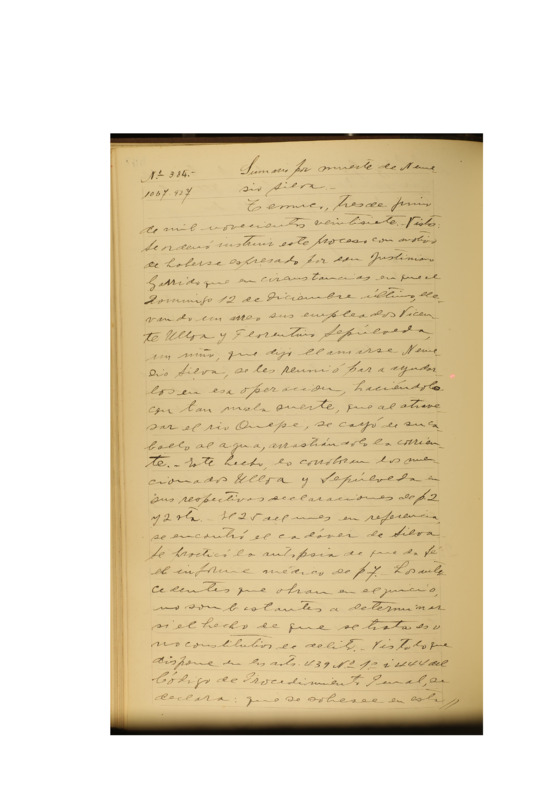 Nº 384.- Sumario por muerte de Neme
1067.927 sio Silva.-
Temuco, tres de junio
de mil novecientos veintisiete.- Vistos:
Se ordenó instruir este proceso con motivo
de haberse expresado por don Justiniano
Garrido que en circunstancias en que el
Domingo 12 de Diciembre último, lle
vando un arreo sus empleados Vicen
te Ulloa y Florentino Sepúlveda,
un niño, que dijo llamarse Neme
sio Silva, se les reunió para ayudar
los en esa operación, haciéndolo
con tan mala suerte, que al atrave
sar el río Quepe, se cayó de su ca
ballo al agua, arrastrándolo la corrien
te.- Este hecho, lo corroboran los men
cionados Ulloa y Sepúlveda en
sus respectivas declaraciones de f 2
y 2 vta.- El 25 del mes en referencia,
se encontró el cadáver de Silva.
Se practicó la autopsia de que da fé
el informe médico de f 7. Los ante
cedentes que obran en el juicio,
no son bastantes a determinar
si el hecho de que se trata es o
no constitutivo de delito.- Visto lo que
dispone en los arts. 439 Nº 1º i 444 del
Código de Procedimiento Penal, se
declara: que se sobresee en esta //